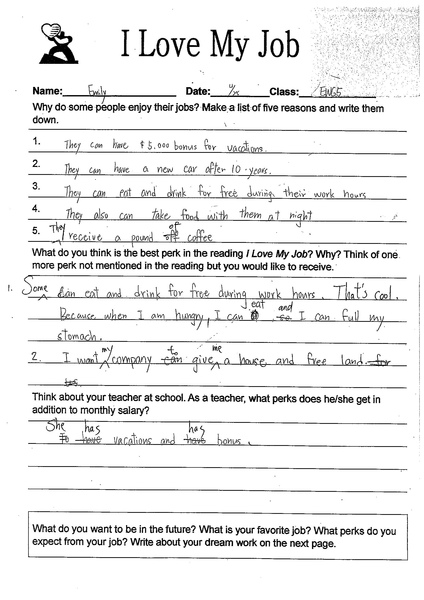 I Love My Job
Name: Emily Date: Class: ENG5
Why do some people enjoy their jobs? Make a list of five reasons and write them
down.
1. They can have $5.000 bonus for vacations.
2. They can have a new car after 10-years.
3. They can eat and drink for free during their work hours
4. They also can take food with them at night
5. They receive a pound of coffee
What do you think is the best perk in the reading I Love My Job? Why? Think of one
more perk not mentioned in the reading but you would like to receive.
1. Some can eat and drink for free during work hours. That's cool.
Because when I am hungry, I can eat and I can full my
stomach.
2. I want my company to give me a house and free land.
Think about your teacher at school. As a teacher, what perks does he/she get in
addition to monthly salary?
She has vacations and has bonus.
What do you want to be in the future? What is your favorite job? What perks do you
expect from your job? Write about your dream work on the next page.